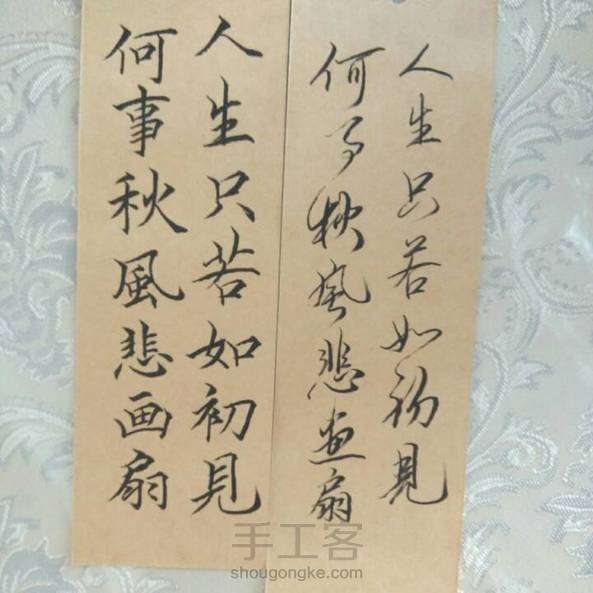 人生只若如初見
何事秋風悲画扇
人生只若如初見
何事秋風悲画扇
手工客
shougongke.com